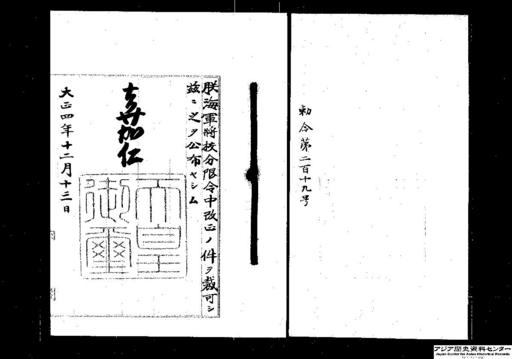 勅令第二百十九号
朕海軍将校分限令中改正ノ件ヲ裁可シ
玆ニ之ヲ公布セシム
嘉仁
天皇御璽
大正四年十二月十三日
内閣
アジア歴史資料センター
Japan Center for Asian Historical Records